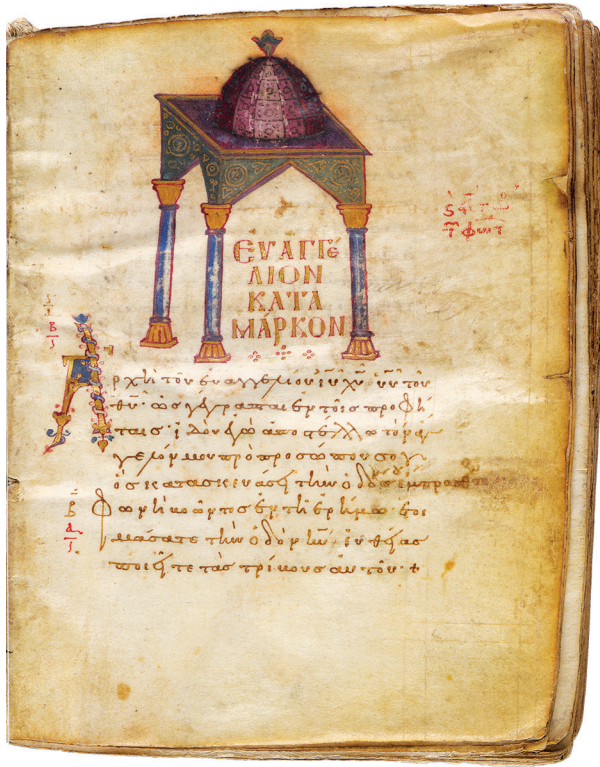 ΕΥΑΓΓΕ
ΛΙΟΝ
ΚΑΤΑ
ΜΆΡΚΟΝ
Ἀρχὴ τοῦ εὐαγγελίου ἰυ χυ υυ τοῦ
θυ· ὡς γέγραπται ἐν τοῖς προφή
ταις· ἰδοὺ ἐγὼ ἀποστέλλω τὸν ἄγ
γελόν μου πρὸ προσώπου σου
ὃς κατασκευάσει τὴν ὁδόν σου ἔμπροσθεν
Φωνὴ βοῶντος ἐν τῇ ἐρήμω· ἑτοι
μάσατε τὴν ὁδὸν κυ· εὐθείας
ποιεῖτε τὰς τρίβους αὐτοῦ·